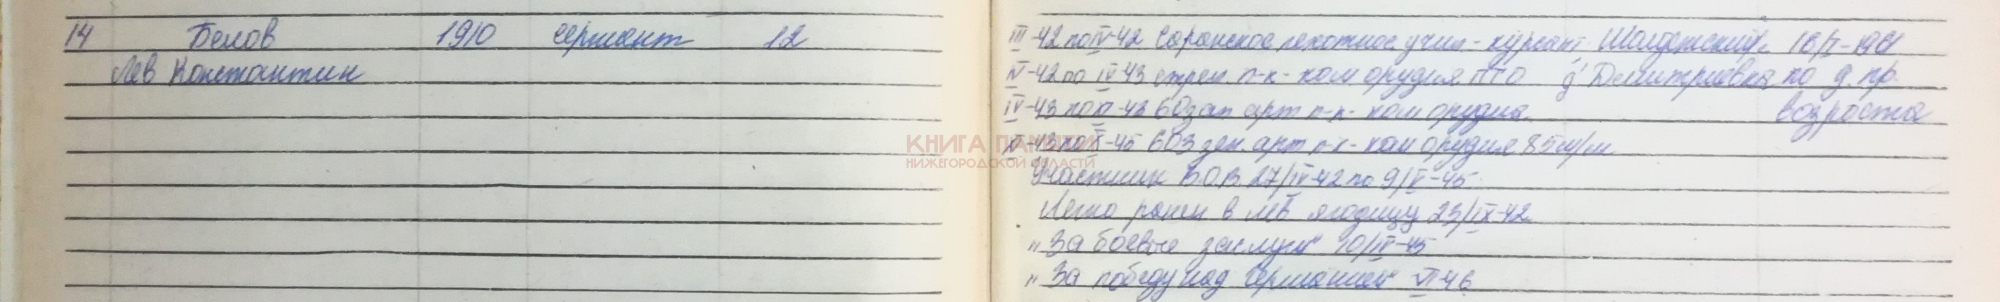 14 Белов 1910 сержант 12
Лев Константин
III-42 по IV-42 Саранское пехотное учил-курсант 16/I-1961
IV-42 по IV-43 стрел п-к-ком орудия ПТО д Дмитриевка по д. пр.
IV-43 по VI-43 60 зап арт п-к-ком орудия возроста
-43 по -45 603 зен арт п-к-ком орудия 85 м/м
КНИГА ПАМЯТИ
НИЖЕГОРОДСКОЙ ОБЛАСТИ
Участник В.О.В. 27/IV-42 по 9/V-45
Легко ранен в лев ягодицу 23/IX-42
"За боевые заслуги" 10/IV-45
"За победу над Германией" VI-46